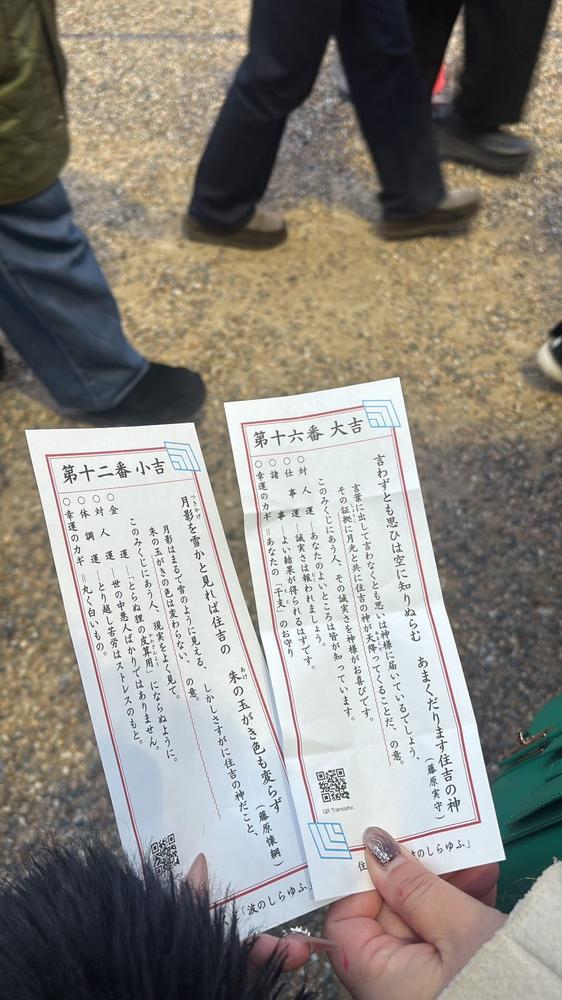 第十二番 小吉
月影を雪かと見れば住吉の 朱の玉がき色も変らず
(藤原懐綱)
月影はまるで雪のように見える、しかしさすがに住吉の神だこと、
朱の玉がきの色は変わらない、の意。
このみくじにあう人、現実をよく見て。
○金運―「とらぬ狸の皮算用」にならぬように。
○対人運―世の中悪人ばかりではありません。
○体調運―とり越し苦労はストレスのもと。
○幸運のカギ＝丸く白いもの。
「波のしらゆふ」
第十六番 大吉
言わずとも思ひは空に知りぬらむ あまくだります住吉の神
(藤原実守)
言葉に出して言わなくとも思いは神様に届いているでしょう、
その証拠に月光と共に住吉の神が天降ってくることだ、の意。
このみくじにあう人、その誠実さを神様がお喜びです。
○対人運―あなたのよいところは皆が知っています。
○仕事運―誠実さは報われましょう
○諸事―よい結果が得られるはずです。
○幸運のカギ＝あなたの「干支」のお守り
QR Translator
住
のしらゆふ」